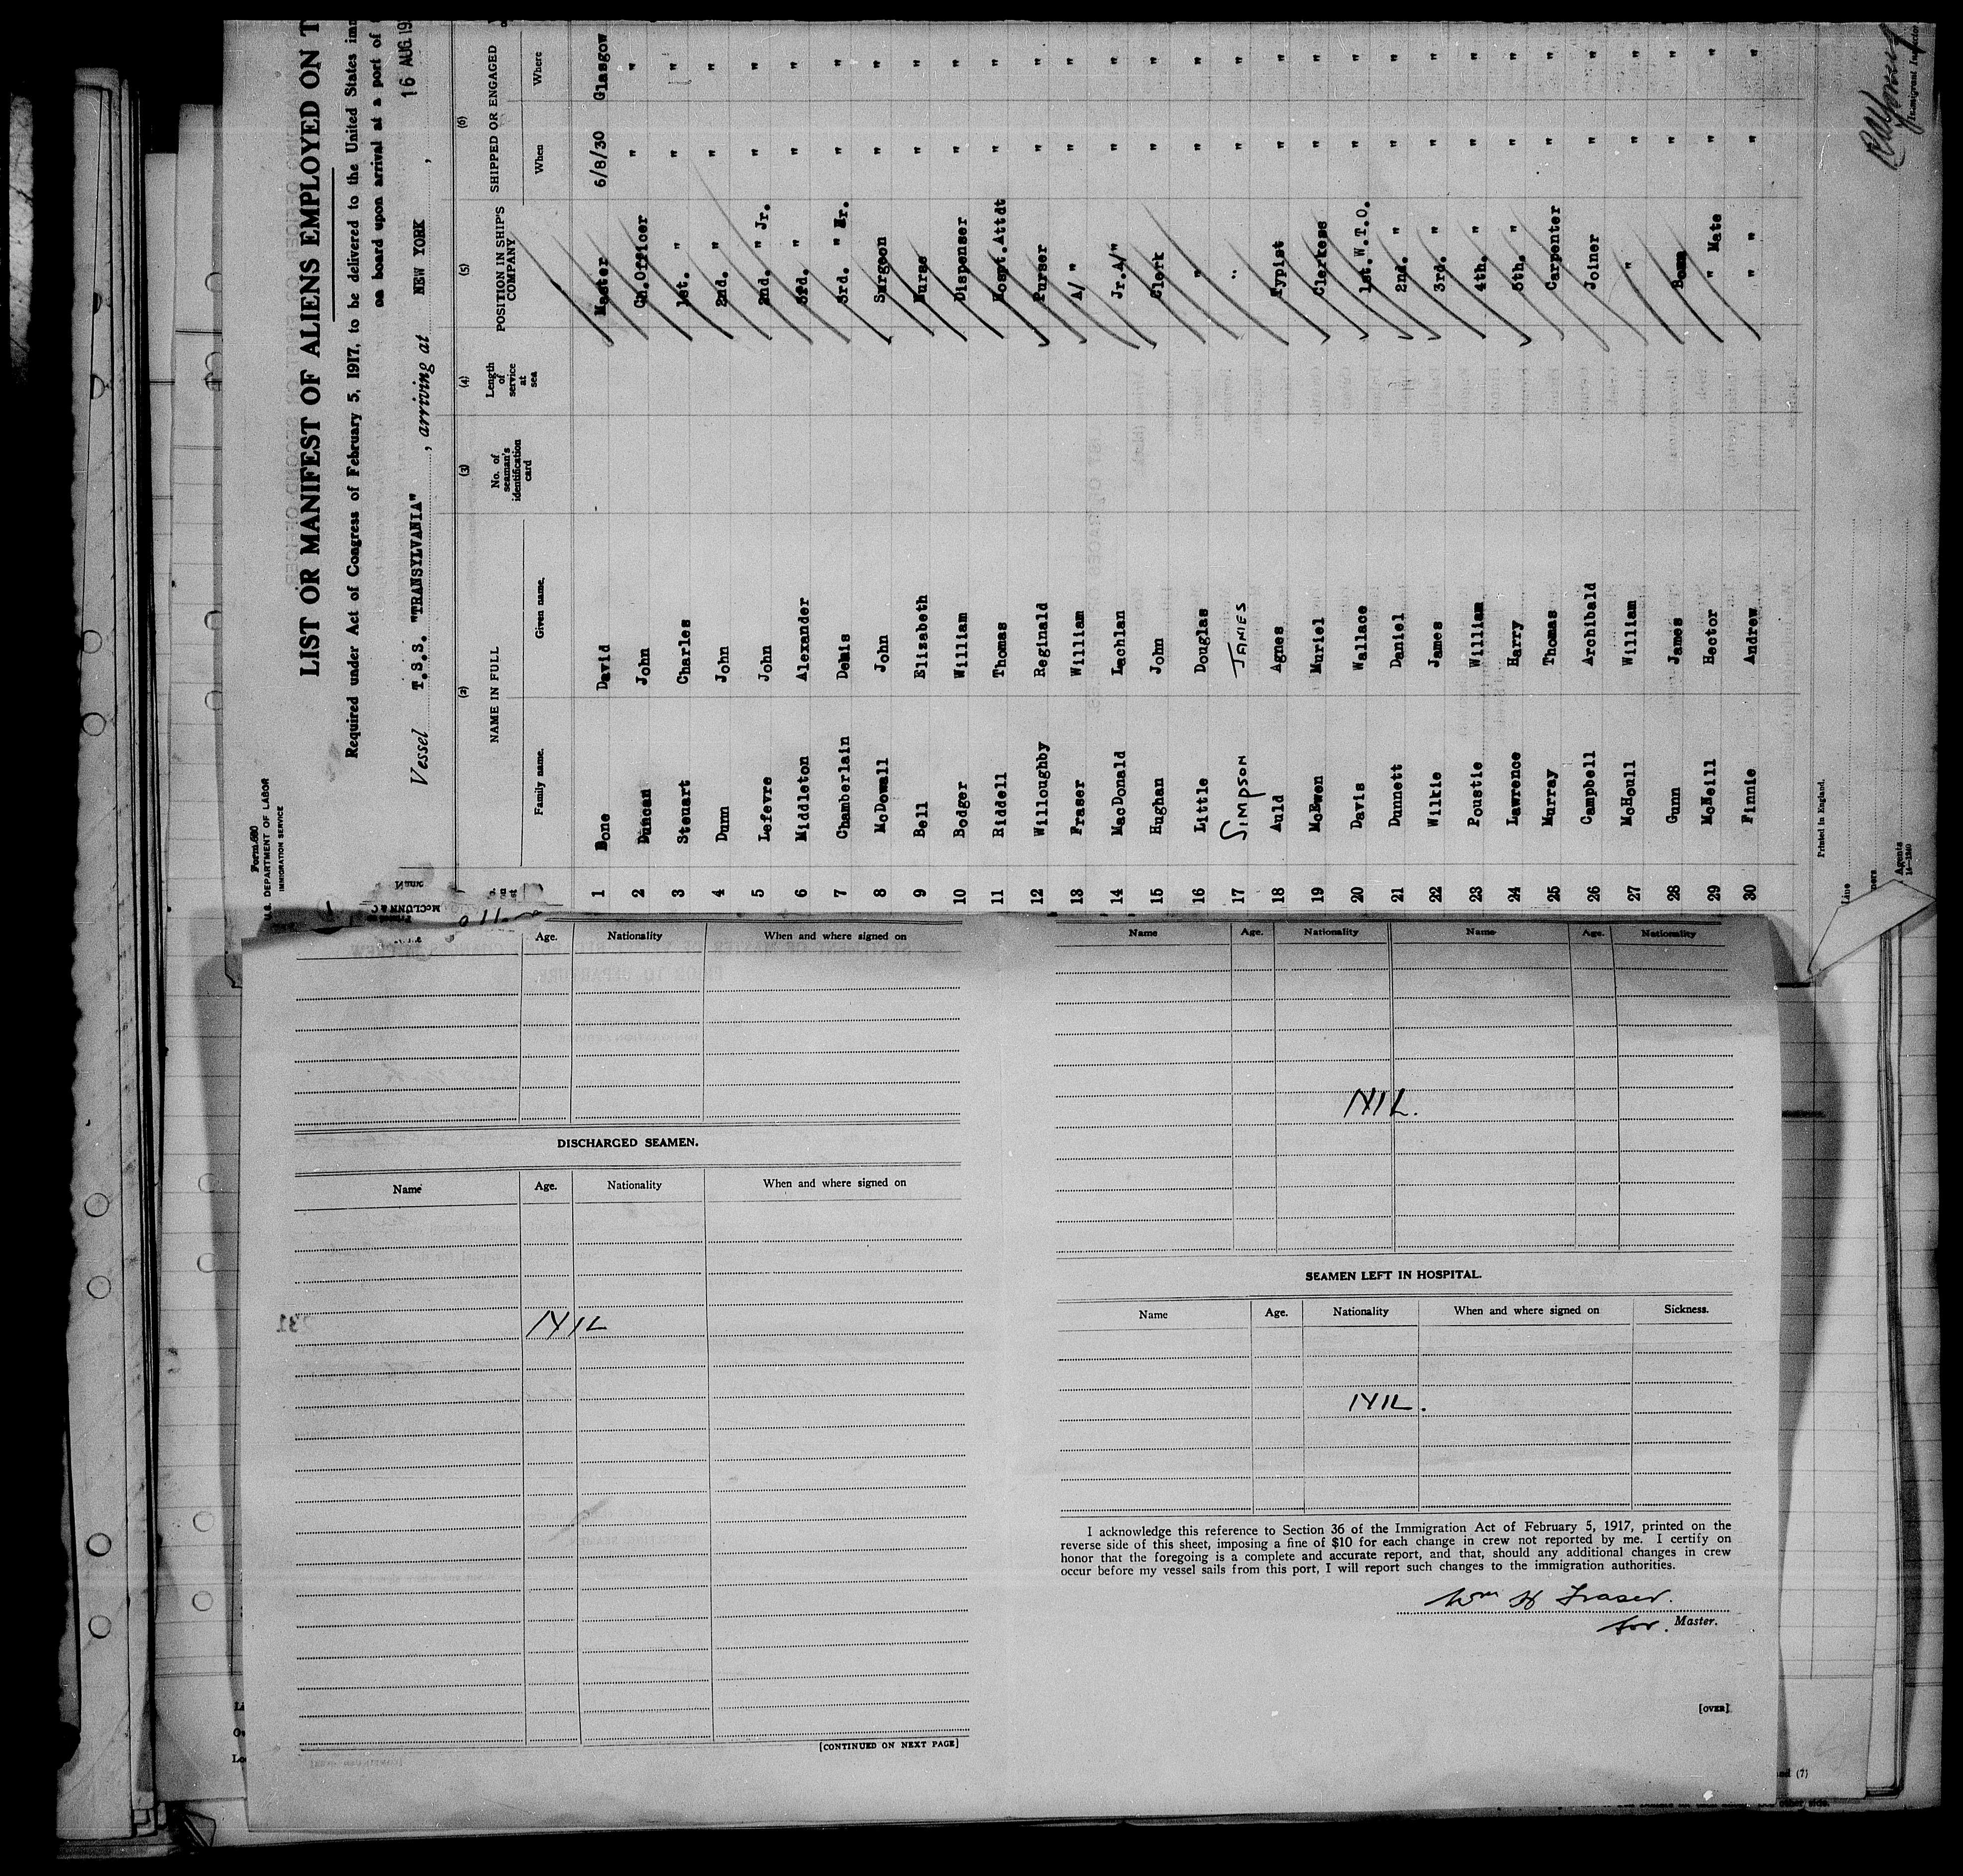 Form 680
U.S. DEPARTMENT OF LABOR
IMMIGRATION SERVICE
LIST OR MANIFEST OF ALIENS EMPLOYED ON T
Required under Act of Congress of February 5, 1917, to be delivered to the United States im
on board upon arrival at a port of
Vessel T.S.S. "TRANSYLVANIA", arriving at NEW YORK, 16 AUG 19
(2) (3) (4) (5) (6)
NAME IN FULL No. of seaman's identification card Length of service at sea POSITION IN SHIP'S COMPANY SHIPPED OR ENGAGED
Family name. Given name. When Where
1 Bone David Master 6/8/30 Glasgow
2 Duncan John Ch.Officer " "
3 Steuart Charles 1st. " " "
4 Dunn John 2nd. " " "
5 Lefevre John 2nd. " Jr. " "
6 Middleton Alexander 3rd. " " "
7 Chamberlain Denis 3rd. " Jr. " "
8 McDowall John Surgeon " "
9 Bell Elizabeth Nurse " "
10 Bodger William Dispenser " "
11 Riddell Thomas Hospt.Attdt " "
12 Willoughby Reginald Purser " "
13 Fraser William A/ " " "
14 MacDonald Lachlan Jr.A/" " "
15 Hughan John Clerk " "
16 Little Douglas " " "
17 SIMPSON JAMES " " "
18 Auld Agnes Typist " "
19 McEwen Muriel Clerkess " "
20 Davis Wallace 1st.W.T.O. " "
21 Dunnett Daniel 2nd. " " "
22 Wilkie James 3rd. " " "
23 Poustie William 4th. " " "
24 Lawrence Harry 5th. " " "
25 Murray Thomas Carpenter " "
26 Campbell Archibald Joiner " "
27 McHoull William " " "
28 Gunn James Bosn " "
29 McNeill Hector " Mate " "
30 Finnie Andrew " " " "
Printed in England.
Line
Agents
Immigrant Inspector
Age. Nationality When and where signed on
DISCHARGED SEAMEN.
Name Age. Nationality When and where signed on
NIL
[CONTINUED ON NEXT PAGE]
Name Age. Nationality Name Age. Nationality
NIL.
SEAMEN LEFT IN HOSPITAL.
Name Age. Nationality When and where signed on Sickness.
NIL.
I acknowledge this reference to Section 36 of the Immigration Act of February 5, 1917, printed on the
reverse side of this sheet, imposing a fine of $10 for each change in crew not reported by me. I certify on
honor that the foregoing is a complete and accurate report, and that, should any additional changes in crew
occur before my vessel sails from this port, I will report such changes to the immigration authorities.
Wm H Fraser.
for. Master.
[OVER]